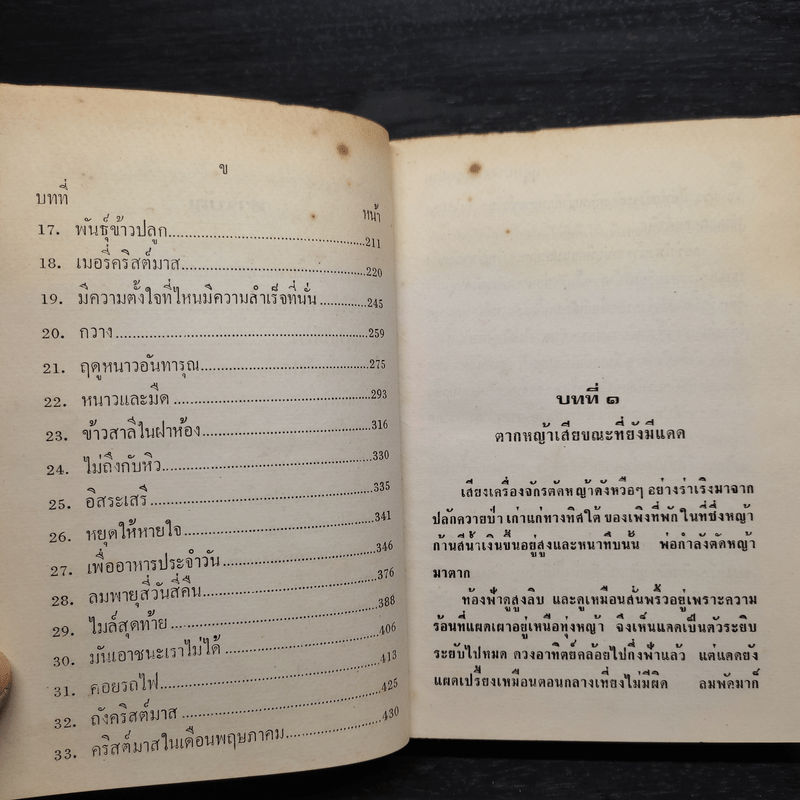 ข
บทที่
หน้า
17. พันธุ์ข้าวปลูก........................211
18. เมอรี่คริสต์มาส........................220
19. มีความตั้งใจที่ไหนมีความสำเร็จที่นั่น........................245
20. กวาง........................259
21. ฤดูหนาวอันทารุณ........................275
22. หนาวและมืด........................293
23. ข้าวสาลีในฝาห้อง........................316
24. ไม่ถึงกับหิว........................330
25. อิสระเสรี........................335
26. หยุดให้หายใจ........................341
27. เพื่ออาหารประจำวัน........................346
28. ลมพายุสี่วันสี่คืน........................376
29. ไมล์สุดท้าย........................388
30. มันเอาชนะเราไม่ได้........................406
31. คอยรถไฟ........................413
32. ถังคริสต์มาส........................425
33. คริสต์มาสในเดือนพฤษภาคม........................430
บทที่ ๑
ตากหญ้าเสียขณะที่ยังมีแดด
เสียงเครื่องจักรตัดหญ้าดังหวือๆ อย่างร่าเริงมาจาก
ปลักควายป่า เก่าแก่ทางทิศใต้ ของเพิงที่พัก ในที่ซึ่งหญ้า
ก้านสีน้ำเงินขึ้นอยู่สูงและหนาทึบนั้น พ่อกำลังตัดหญ้า
มาตาก
ท้องฟ้าดูสูงลิบ และดูเหมือนสั่นพริ้วอยู่เพราะความ
ร้อนที่แผดเผาอยู่เหนือทุ่งหญ้า จึงเห็นแดดเป็นตัวระยิบ
ระยับไปหมด ดวงอาทิตย์คล้อยไปกึ่งฟ้าแล้ว แต่แดดยัง
แผดเปรี้ยงเหมือนตอนกลางเที่ยงไม่มีผิด ลมพัดมาก็